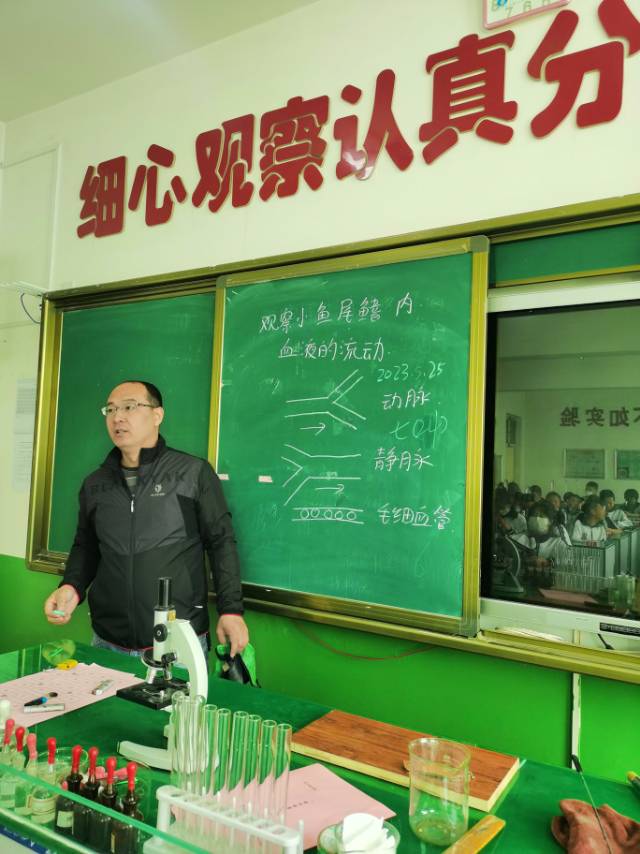 细心观察认真分
观察小鱼尾鳍内
血液的流动
2023.5.25
动脉
七
静脉
毛细血管
不如实验